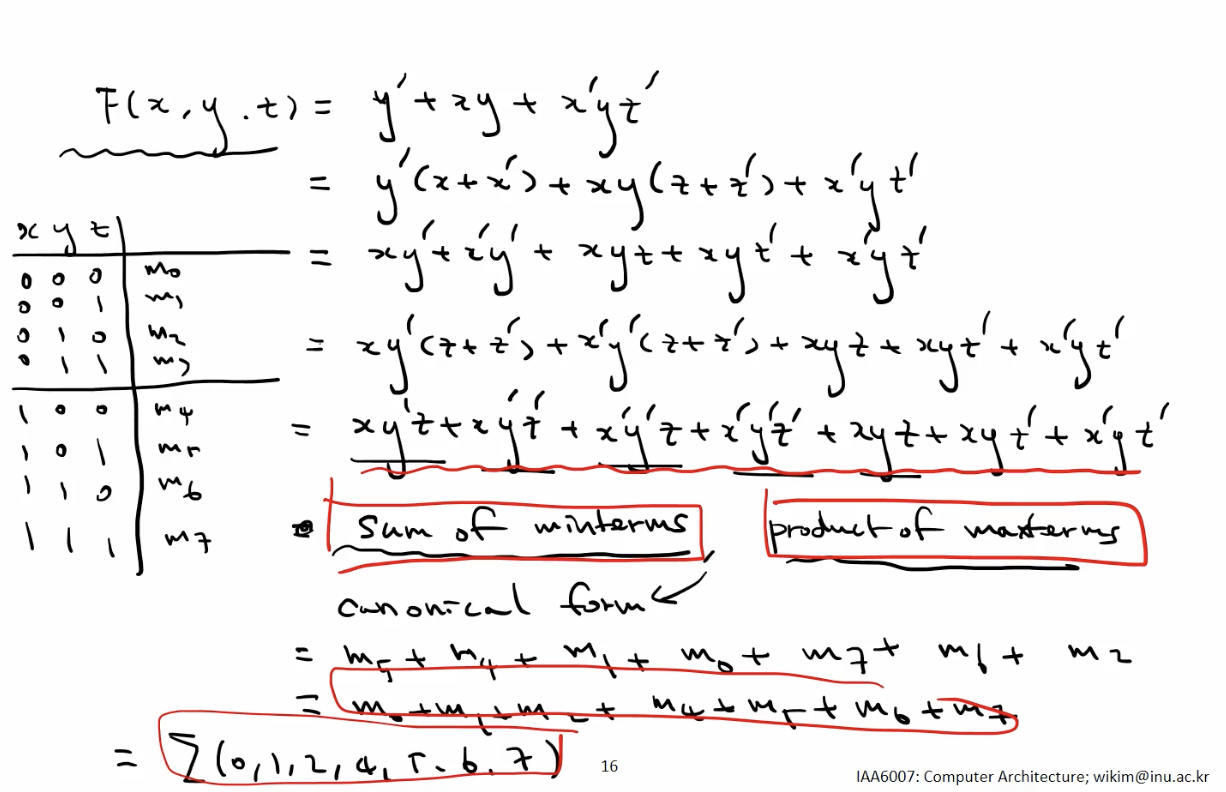 F(x, y. z) = y' + xy + x'yz'
= y'(x+x') + xy(z+z') + x'yz'
= xy' + x'y' + xyz + xyz' + x'yz'
= xy'(z+z') + x'y'(z+z') + xyz + xyz' + x'yz'
= xy'z + xy'z' + x'y'z + x'y'z' + xyz + xyz' + x'yz'
x y z
0 0 0 m0
0 0 1 m1
0 1 0 m2
0 1 1 m3
1 0 0 m4
1 0 1 m5
1 1 0 m6
1 1 1 m7
sum of minterms product of maxterms
canonical form
= m5 + m4 + m1 + m0 + m7 + m6 + m2
= m0 + m1 + m2 + m4 + m5 + m6 + m7
= Σ(0, 1, 2, 4, 5. 6. 7)
16
IAA6007: Computer Architecture; wikim@inu.ac.kr